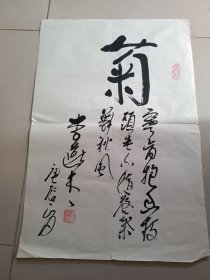 菊
寧肯抱香枝
頭老不隨葉
舞秋風
李燕杰
庚辰